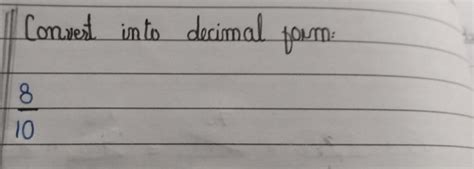 Convert into decimal form:
8
10